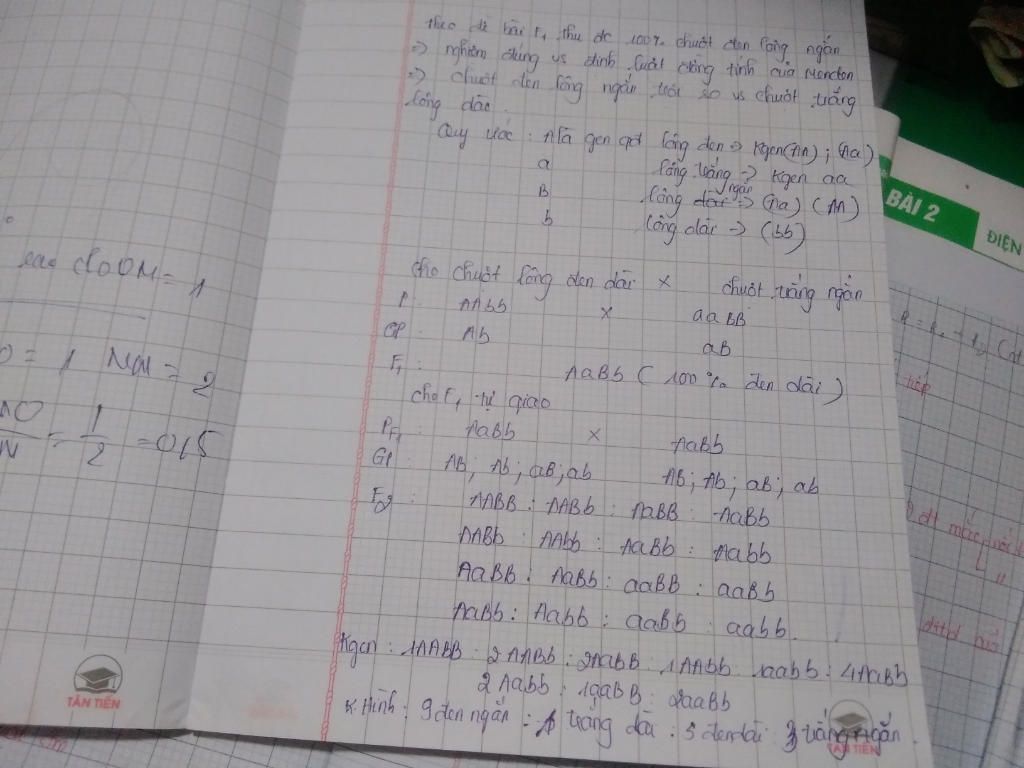 theo đề bài F1 thu đc 100% chuột đen lông ngắn
=> nghiệm đúng vs định luật đồng tính của Menđen
=> chuột đen lông ngắn trội so vs chuột trắng
lông dài.
Quy ước : A là gen qđ lông đen => Kgen(AA) ; (Aa)
a lông trắng -> Kgen aa
B lông dài ngắn -> (Aa) (AA)
b lông dài -> (bb)
cho chuột lông đen dài x chuột trắng ngắn
P : AAbb x aaBB
GP : Ab aB
F1 : AaBb ( 100% đen dài )
cho F1 tự giao
PF1 : AaBb x AaBb
GP : AB; Ab; aB; ab AB; Ab; aB; ab
F2 : AABB : AABb : AaBB : AaBb
AABb : AAbb : AaBb : Aabb
AaBB : AaBb : aaBB : aaBb
AaBb : Aabb : aaBb : aabb.
Kgen : 1AABB : 2AABb : 2AaBB : 1AAbb : 1aabb : 4AaBb
2Aabb : 1aaBB : 2aaBb
K.Hình : 9 đen ngắn : 1 trắng dài : 3 đen dài : 3 trắng ngắn
= 1
= 1 = 2
= 1/2 = 0,5
TÂN TIẾN
TÂN TIẾN
BÀI 2
ĐIỆN
tiếp